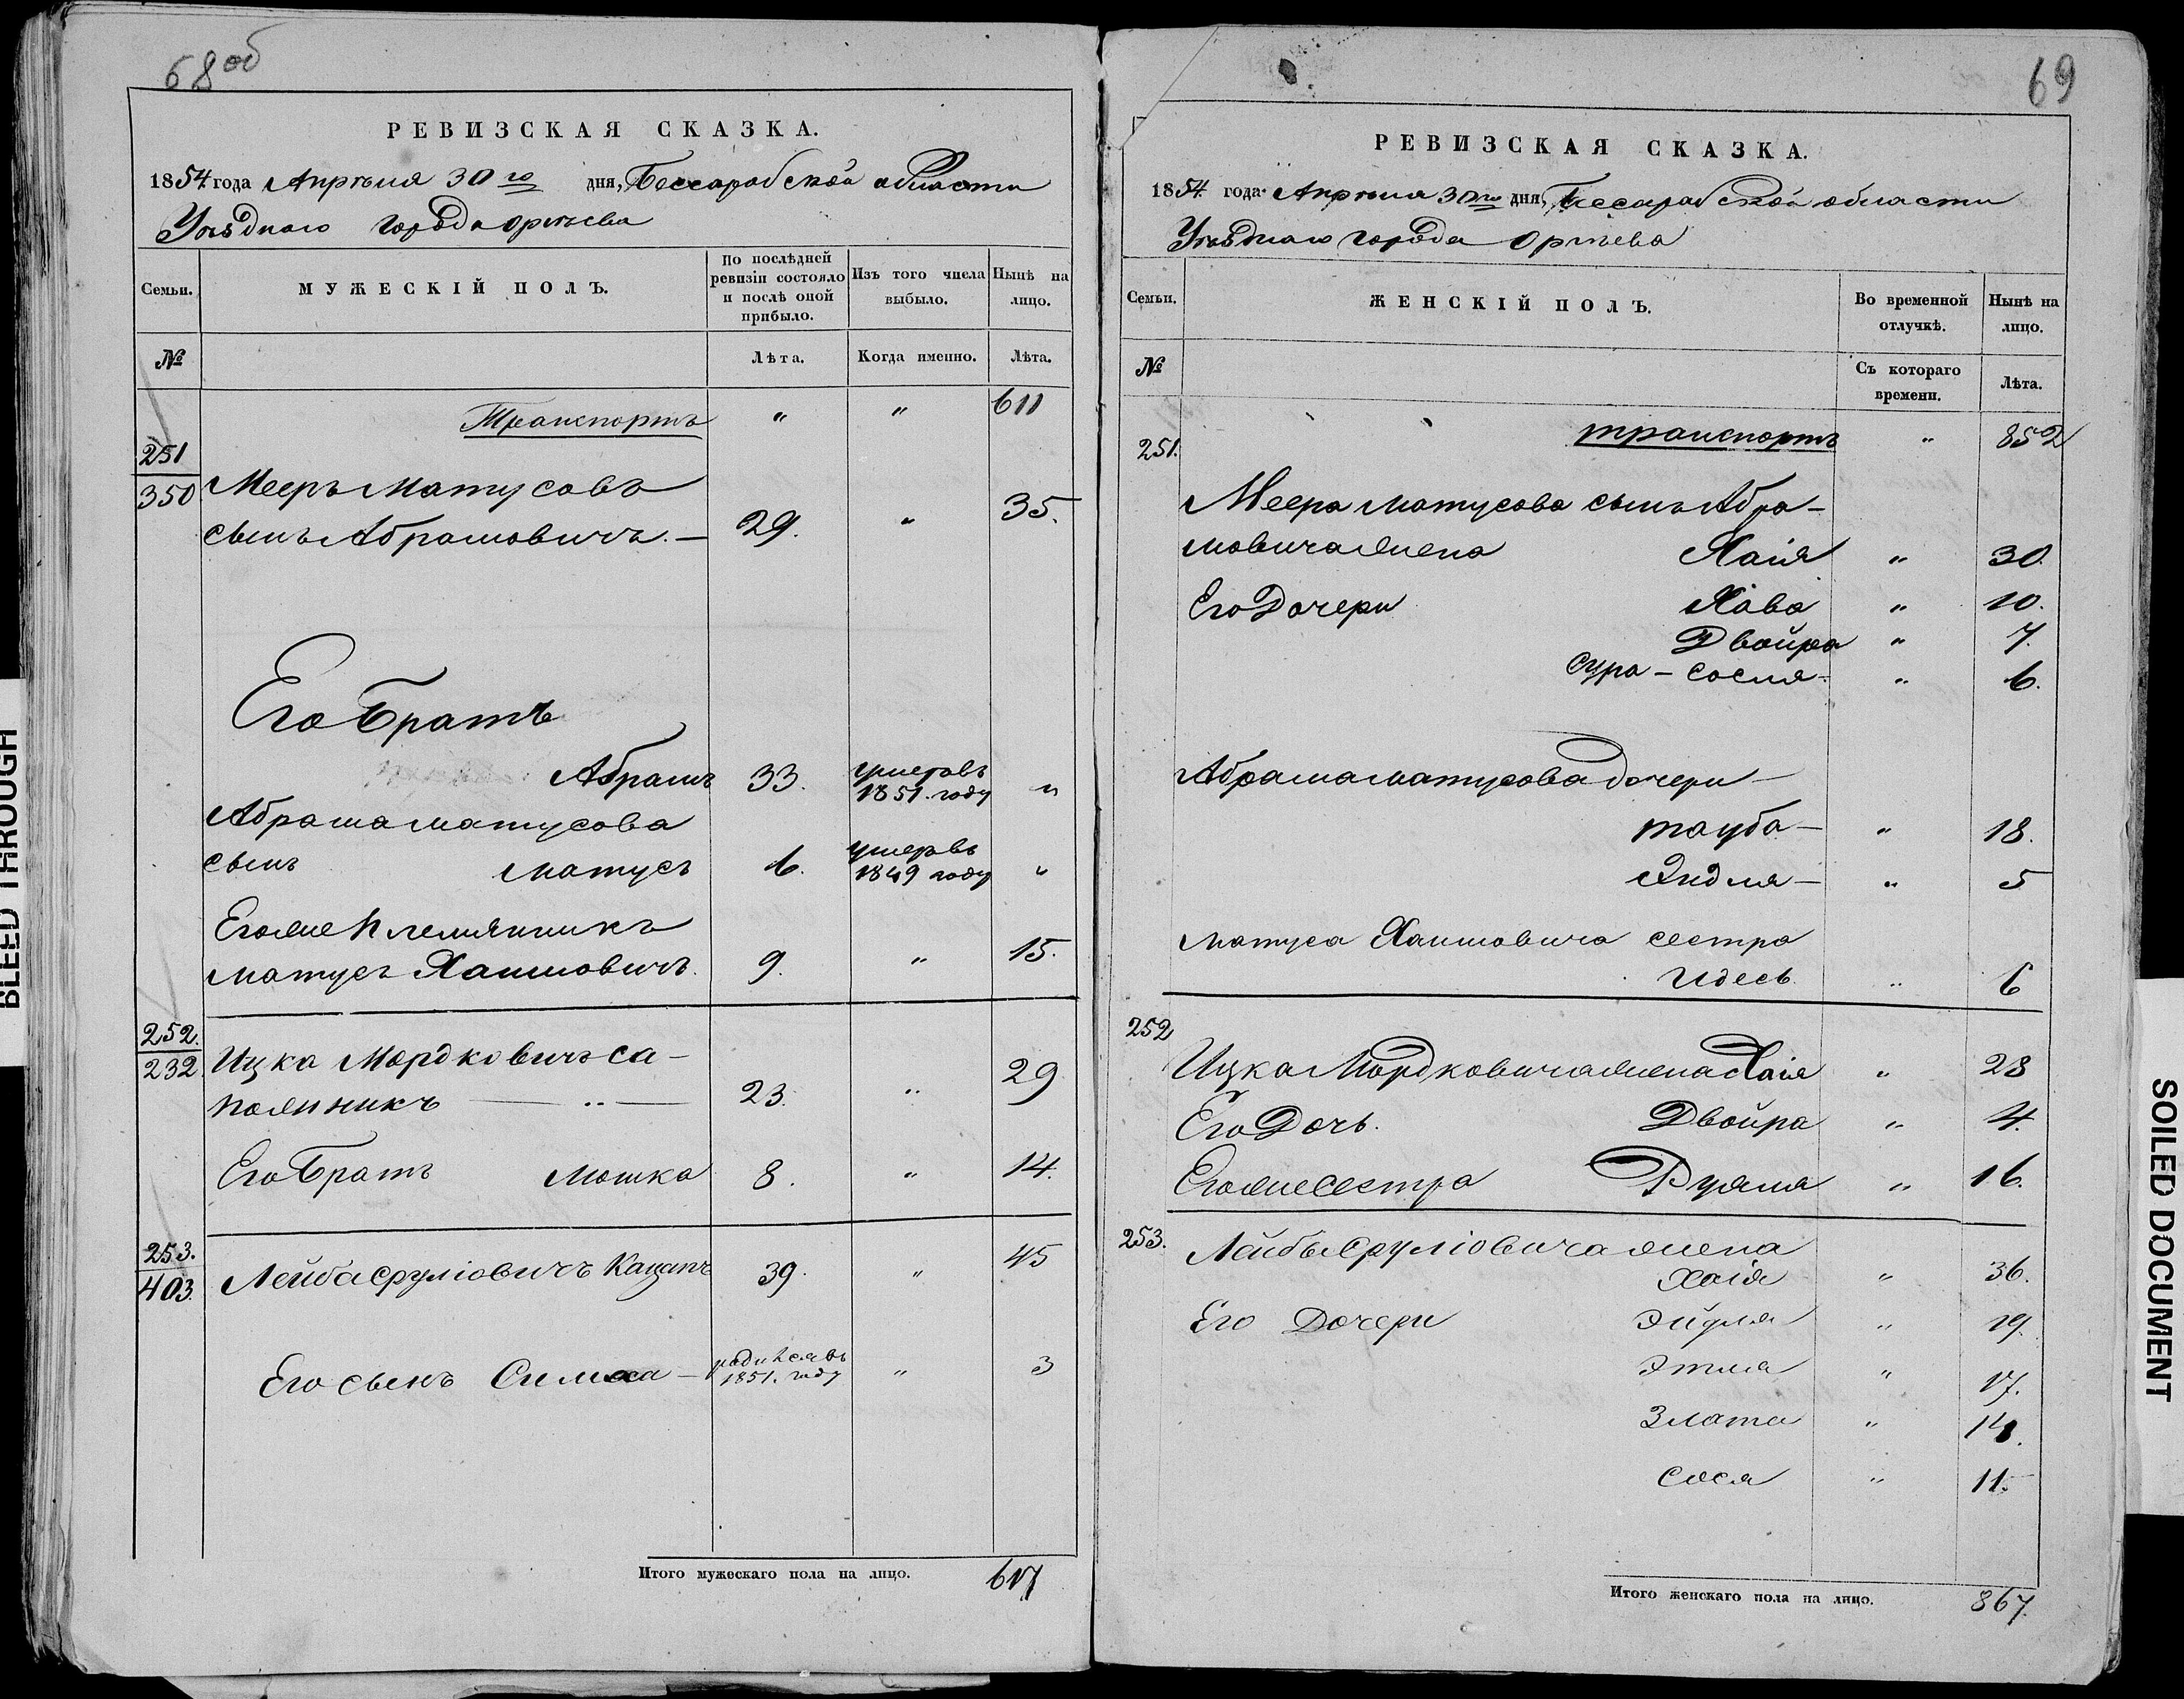 68об
РЕВИЗСКАЯ СКАЗКА.
1854 года Апрѣля 30го дня, Бессарабской области
Уѣзднаго города Оргѣева
Семьи.
МУЖЕСКІЙ ПОЛЪ.
По послѣдней ревизіи состояло и послѣ оной прибыло.
Изъ того числа выбыло.
Нынѣ на лицо.
№
Лѣта.
Когда именно.
Лѣта.
Транспортъ " " 611
251
350
Мееръ Матусовъ
сынъ Абрамовичъ. — 29. " 35.
Его Братъ
Абрамъ 33. умеръ въ 1851. году "
Абрама Матусова
сынъ Матусъ 6. умеръ въ 1849 году "
Егоже Племянникъ
Матусъ Хаимовичъ. 9. " 15.
252.
232.
Ицка Мордковичъ Са-
пожникъ — " — 23. " 29
Его Братъ Мошка 8. " 14.
253.
403.
Лейба Сруліовичъ Кацапъ 39. " 45
Его сынъ Симха — родился въ 1851. году " 3
Итого мужескаго пола на лицо. 617
69
РЕВИЗСКАЯ СКАЗКА.
1854 года Апрѣля 30го дня, Бессарабской области
Уѣзднаго города Оргѣева
Семьи.
ЖЕНСКІЙ ПОЛЪ.
Во временной отлучкѣ.
Нынѣ на лицо.
№
Съ котораго времени.
Лѣта.
транспортъ " 852
251.
Меера Матусова сынъ Абра-
мовича жена Хаія " 30.
Его Дочери Хава " 10.
Двойра " 7.
Сура – Сосля " 6.
Абрама Матусова дочери —
Тауба — " 18.
Эидля — " 5
Матуса Хаимовича сестра
Идесь " 6
252
Ицка Мордковича жена Хаія " 28
Его Дочь. Двойра " 4.
Егоже Сестра Рухля " 16.
253.
Лейбы Сруліовича жена
Хаія " 36.
Его Дочери Эйдля " 19.
Этля " 17.
Злата " 14.
Сося " 11.
Итого женскаго пола на лицо. 867.
BLEED THROUGH
SOILED DOCUMENT